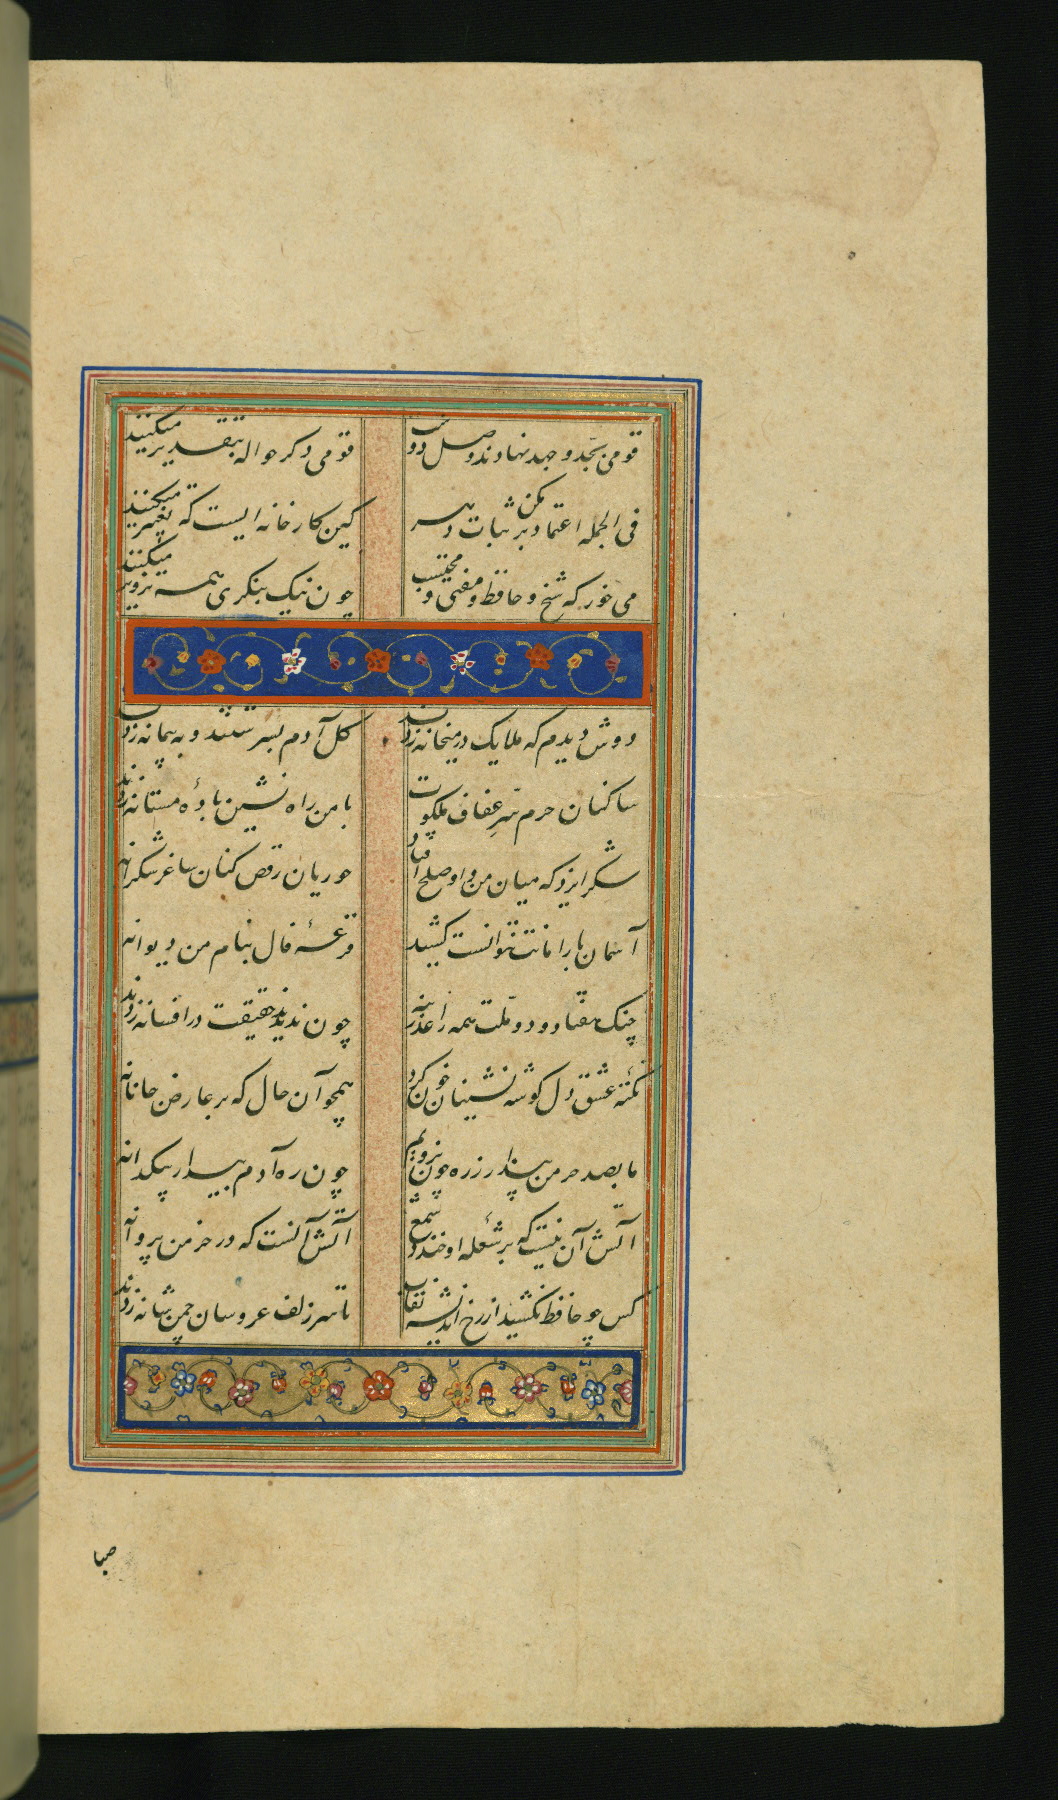 قومی بجد و جهد نهادند وصل دوست قومی دکر حواله بتقدیر میکنند
فی الجمله اعتماد مکن بر ثبات دهر کین کارخانه ایست که تغییر میکنند
می خور که شیخ و حافظ و مفتی و محتسب چون نیک بنکری همه تزویر میکنند
دوش دیدم که ملایک در میخانه زدند کل آدم بسرشتند و به پیمانه زدند
ساکنان حرم سر عفاف ملکوت با من راه نشین بادهٔ مستانه زدند
شکر ایزد که میان من و او صلح افتاد حوریان رقص کنان ساغر شکرانه
آسمان بار امانت نتوانست کشید قرعهٔ فال بنام من دیوانه
جنک هفتاد و دو ملت همه را عذر بنه چون ندیدند حقیقت در افسانه زدند
نکتهٔ عشق دل کوشه نشینان خون کرد همچو آن خال که بر عارض جانانه
ما بصد خرمن پندار ز ره چون نرویم چون ره آدم بیدار بیکدانه
آتش آن نیست که بر شعلهٔ او خندد شمع آتش آنست که در خرمن پروانه
کس چو حافظ نکشید از رخ اندیشه نقاب تا سر زلف عروسان چمن شانه زدند
صبا